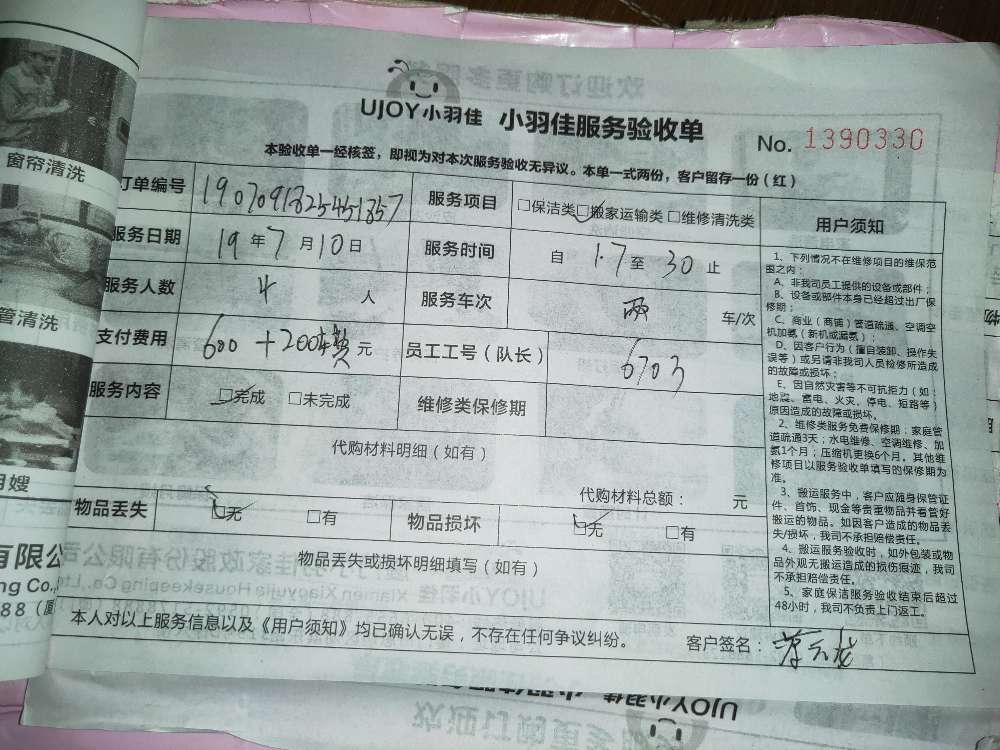 窗帘清洗
管清洗
月嫂
有限公
ng Co.,
88（厦
UJOY小羽佳 小羽佳服务验收单
No. 1390330
本验收单一经核签，即视为对本次服务验收无异议。本单一式两份，客户留存一份（红）
订单编号 服务项目 □保洁类 □搬家运输类 □维修清洗类
服务日期 19年7月10日 服务时间 自 1.7 至 30 止
服务人数 4 人 服务车次 两 车/次
支付费用 600+200 元 员工工号（队长） 6703
服务内容 □完成 □未完成 维修类保修期
代购材料明细（如有）
代购材料总额： 元
物品丢失 □无 □有 物品损坏 □无 □有
物品丢失或损坏明细填写（如有）
本人对以上服务信息以及《用户须知》均已确认无误，不存在任何争议纠纷。 客户签名：
用户须知
1、下列情况不在维修项目的维保范
围之内：
A、非我司员工提供的设备或部件；
B、设备或部件本身已经超过出厂保
修期；
C、商业（商铺）管道疏通、空调空
机加氨（新机或漏氨）；
D、因客户行为（擅自装卸、操作失
误等）或另请非我司人员检修所造成
的故障或损坏；
E、因自然灾害等不可抗拒力（如：
地震、雷电、火灾、停电、短路等）
原因造成的故障或损坏。
2、维修类服务免费保修期：家庭管
道疏通3天；水电维修、空调维修、加
氨1个月；压缩机更换6个月。其他维
修项目以服务验收单填写的保修期为
准。
3、搬运服务中，客户应随身保管证
件、首饰、现金等贵重物品并看管好
搬运的物品。如因客户造成的物品丢
失/损坏，我司不承担赔偿责任。
4、搬运服务验收时，如外包装或物
品外观无搬运造成的损伤痕迹，我司
不承担赔偿责任。
5、家庭保洁服务验收结束后超过
48小时，我司不负责上门返工。